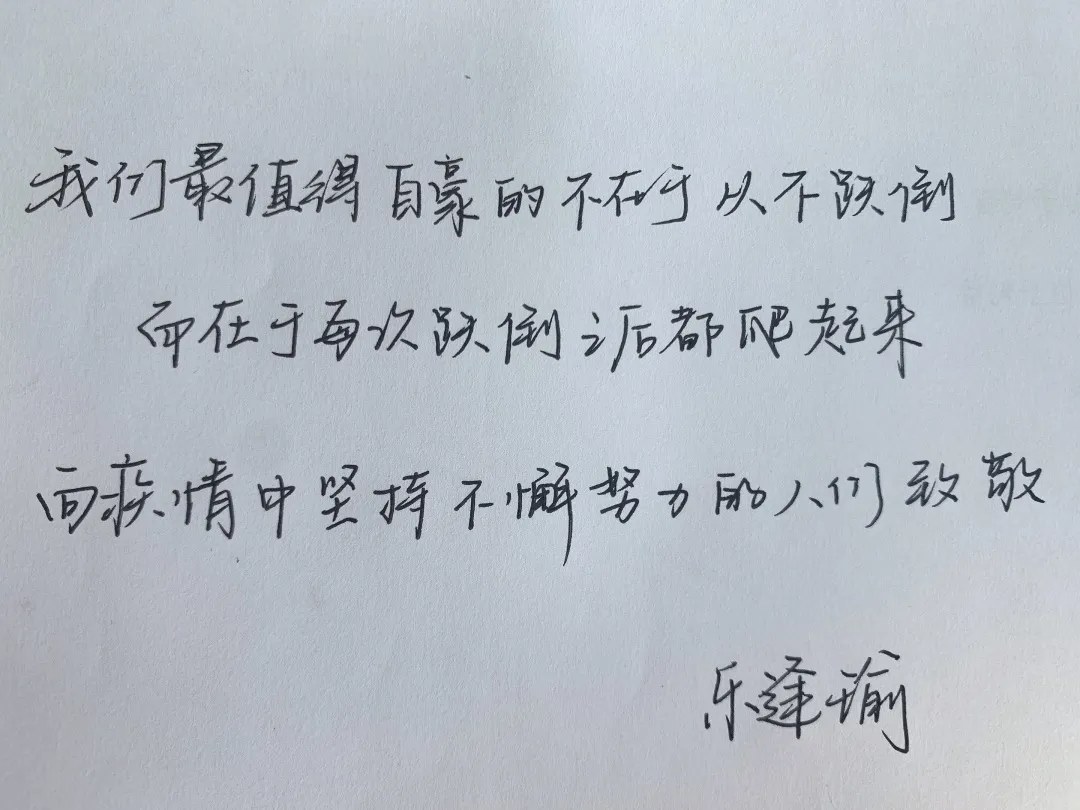 我们最值得自豪的不在于从不跌倒
而在于每次跌倒之后都爬起来
向疫情中坚持不懈努力的人们致敬
乐逢瑜